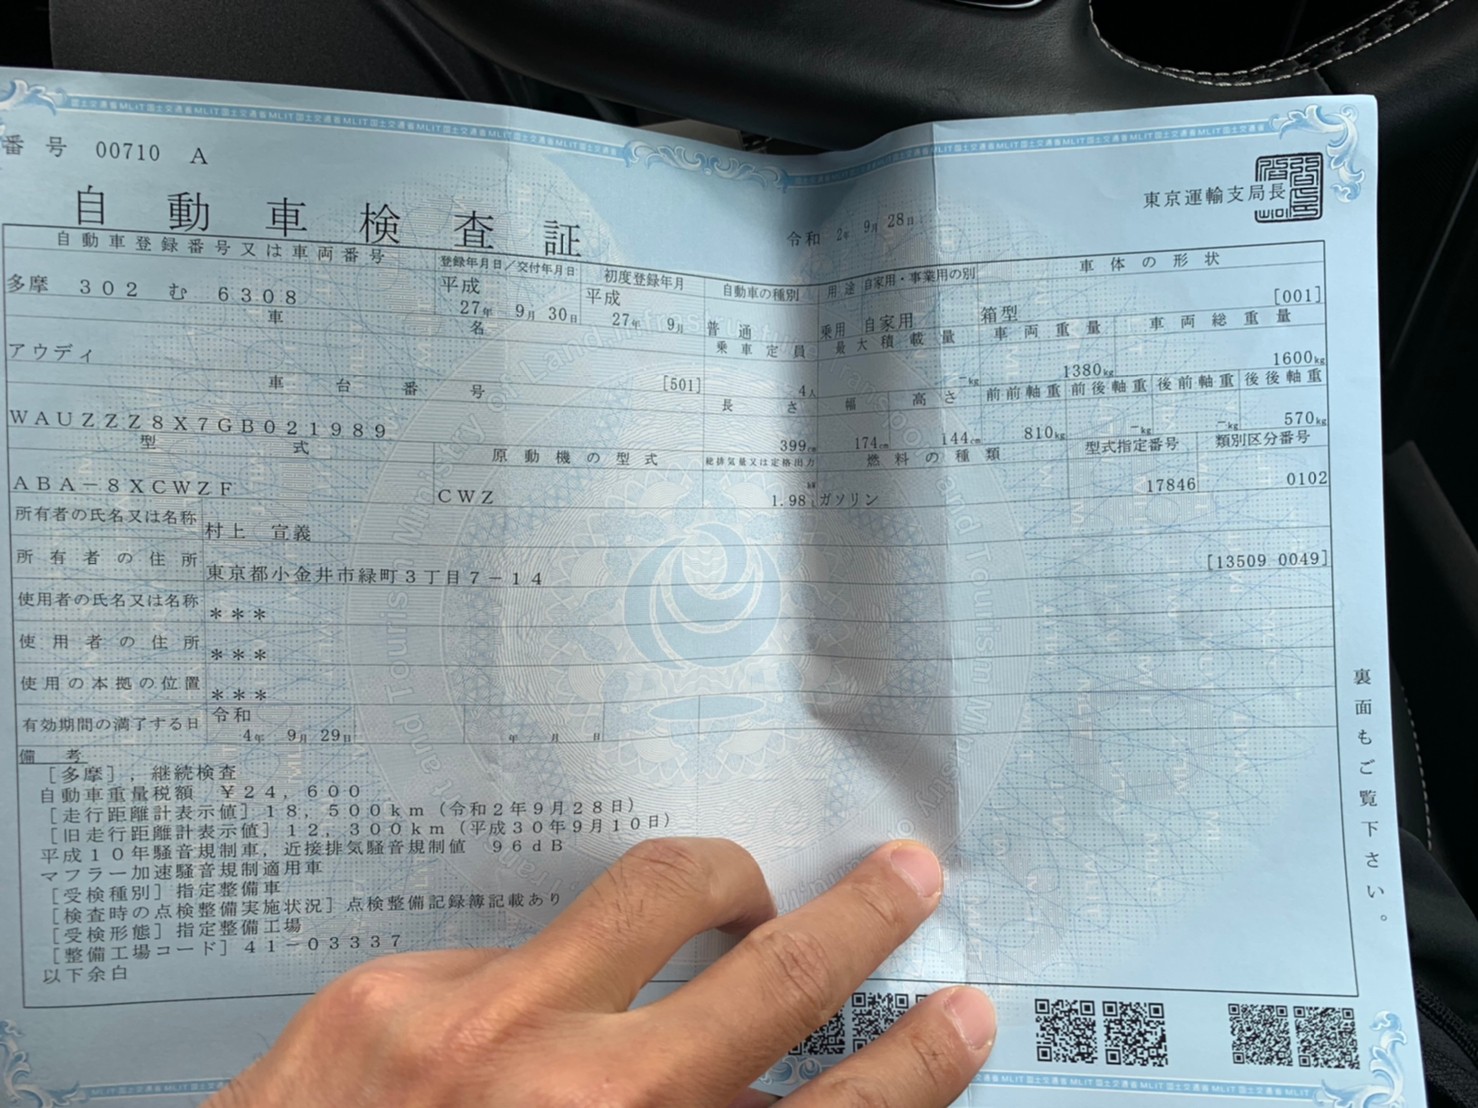 番号 00710 A
東京運輸支局長
自動車検査証
令和 2年 9月 28日
自動車登録番号又は車両番号 登録年月日/交付年月日 初度登録年月 自動車の種別 用途 自家用・事業用の別 車体の形状
多摩 302 む 6308 平成 27年 9月 30日 平成 27年 9月 普通 乗用 自家用 箱型 [001]
車名 乗車定員 最大積載量 車両重量 車両総重量
アウディ [501] 4人 -kg 1380kg 1600kg
車台番号 長さ 幅 高さ 前前軸重 前後軸重 後前軸重 後後軸重
WAUZZZ8X7GB021989 399cm 174cm 144cm 810kg -kg -kg 570kg
型式 原動機の型式 総排気量又は定格出力 燃料の種類 型式指定番号 類別区分番号
ABA-8XCWZF CWZ 1.98 kW L ガソリン 17846 0102
所有者の氏名又は名称 村上 宣義
所有者の住所 東京都小金井市緑町3丁目7-14 [13509 0049]
使用者の氏名又は名称 ***
使用者の住所 ***
使用の本拠の位置 ***
有効期間の満了する日 令和 4年 9月 29日 年 月 日
備考
[多摩],継続検査
自動車重量税額 ¥24,600
[走行距離計表示値]18,500km(令和2年9月28日)
[旧走行距離計表示値]12,300km(平成30年9月10日)
平成10年騒音規制車,近接排気騒音規制値 96dB
マフラー加速騒音規制適用車
[受検種別]指定整備車
[検査時の点検整備実施状況]点検整備記録簿記載あり
[受検形態]指定整備工場
[整備工場コード]41-03337
以下余白
裏面もご覧下さい。